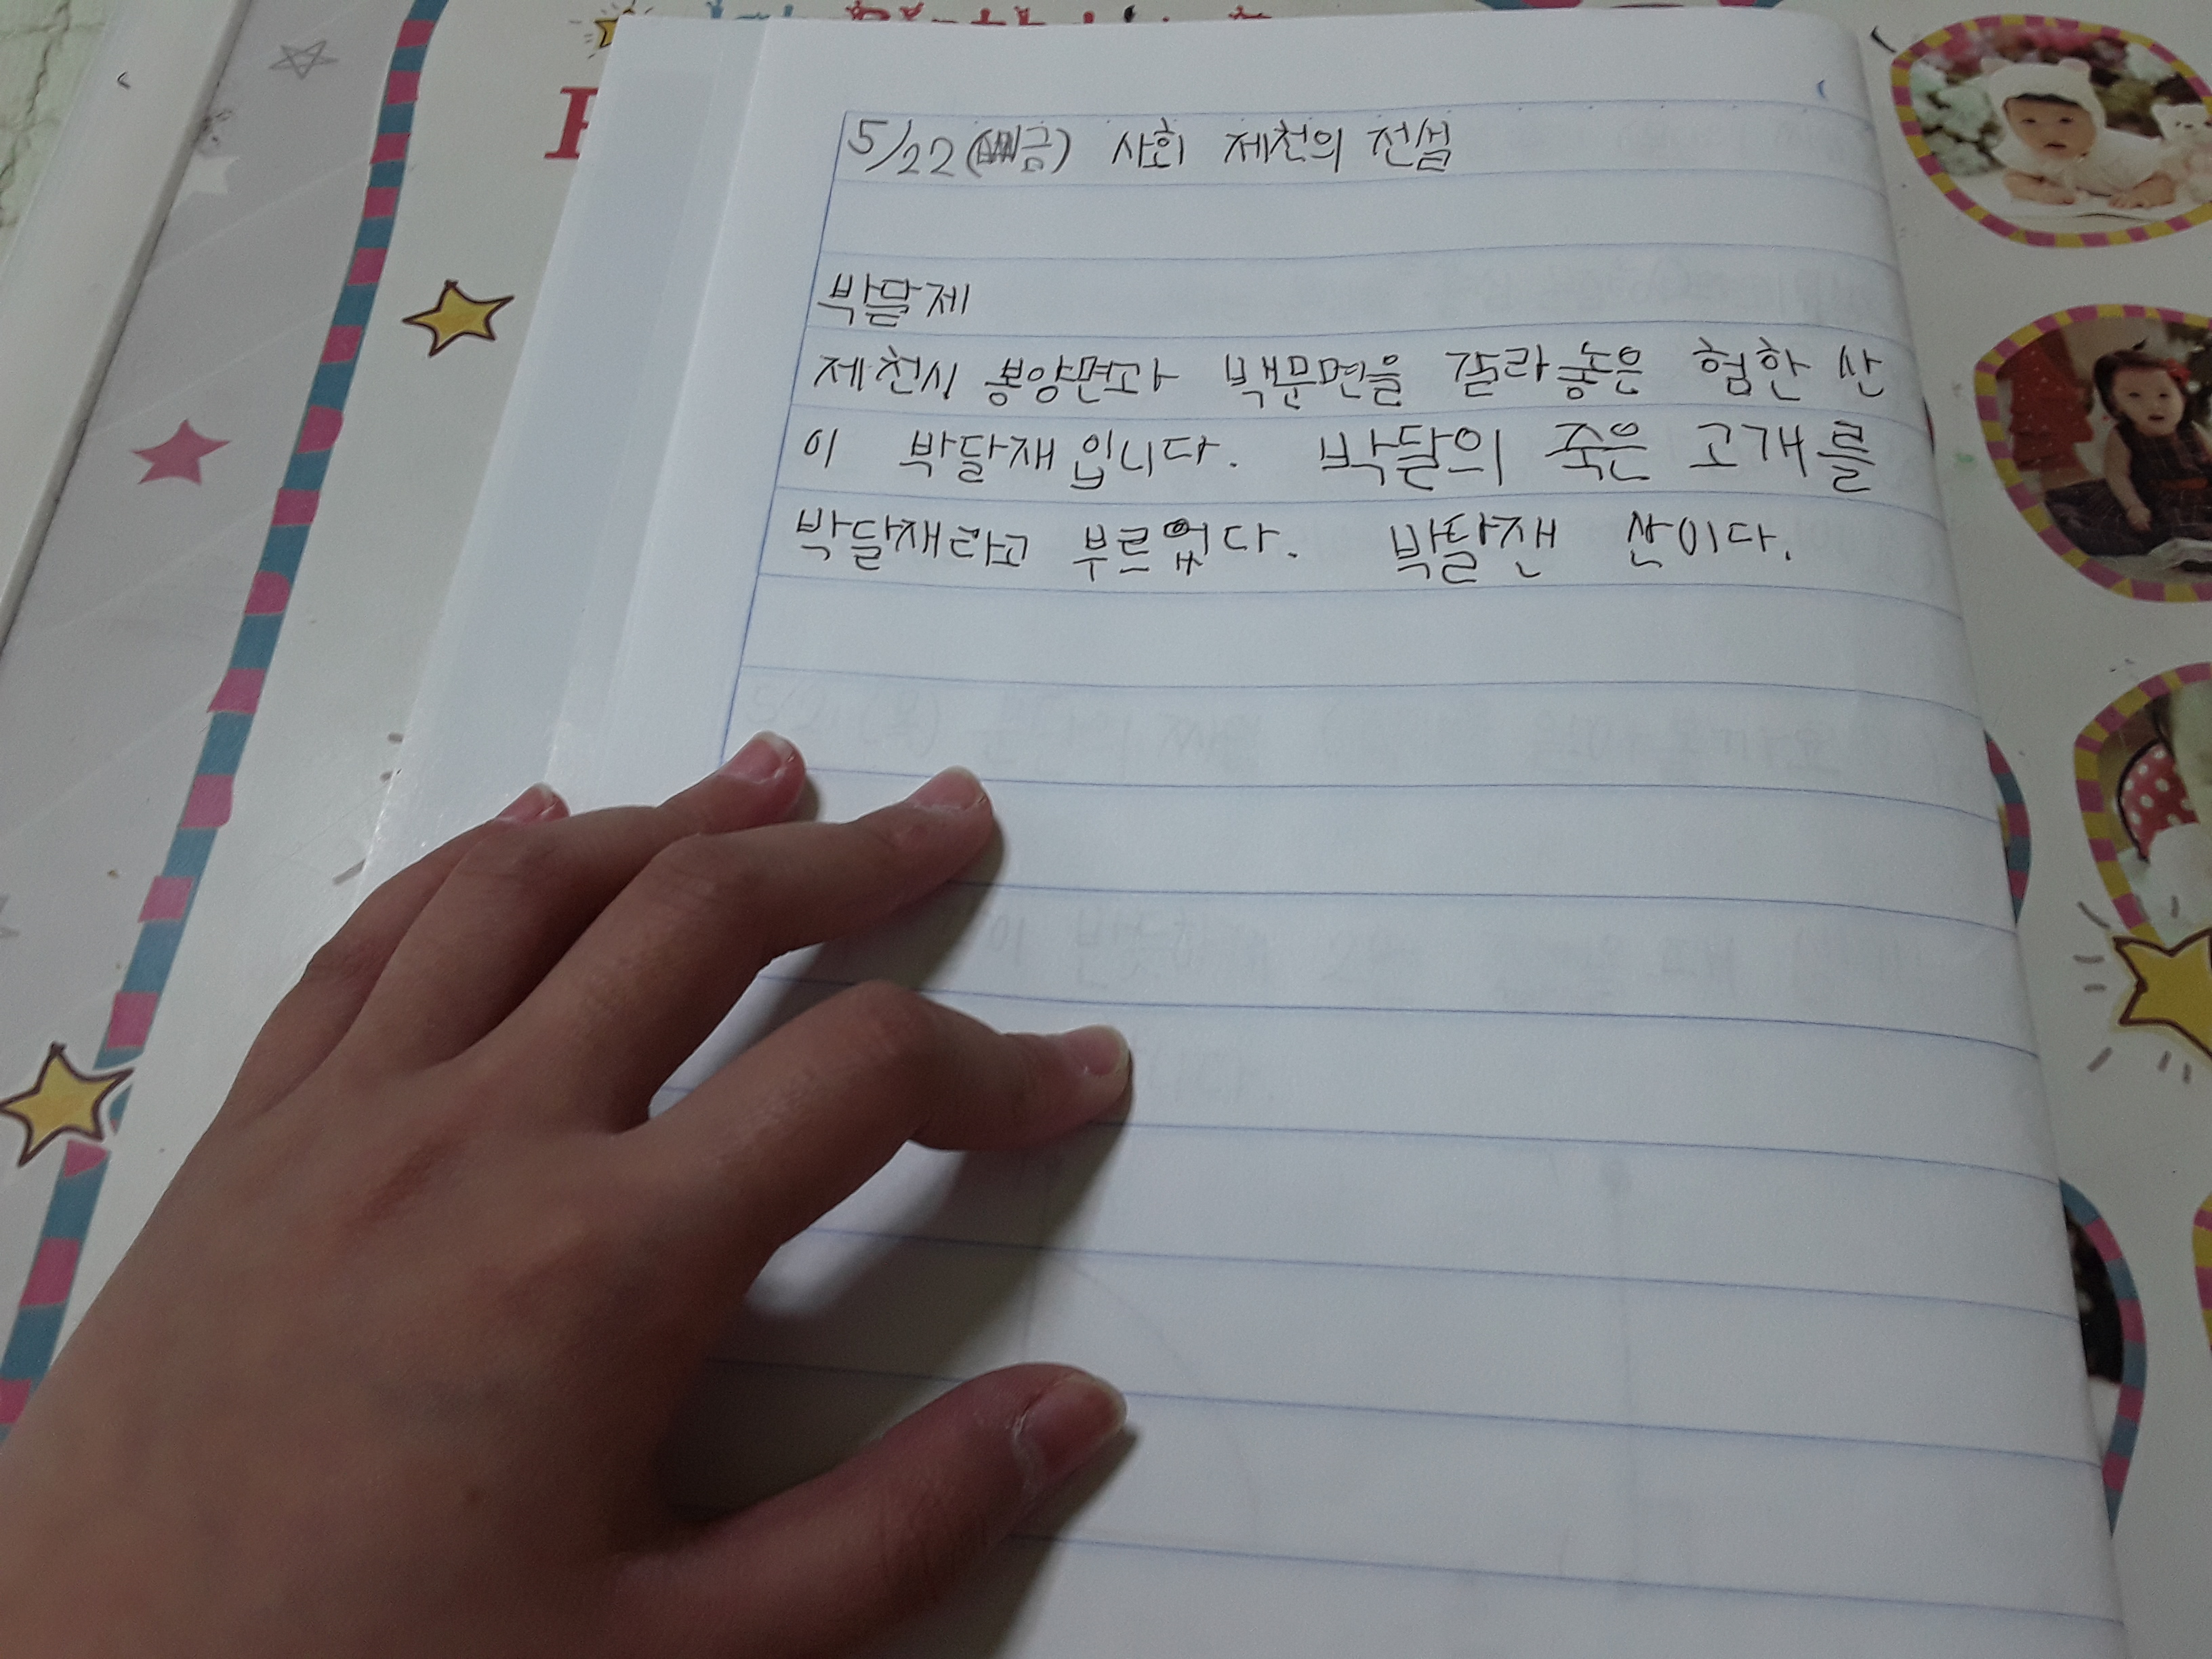 5/22(금) 사회 제천의 전설
박달제
제천시 봉양면과 백문면을 갈라놓은 험한 산
이 박달재입니다. 박달의 죽은 고개를
박달재라고 부르없다. 박달잰 산이다.